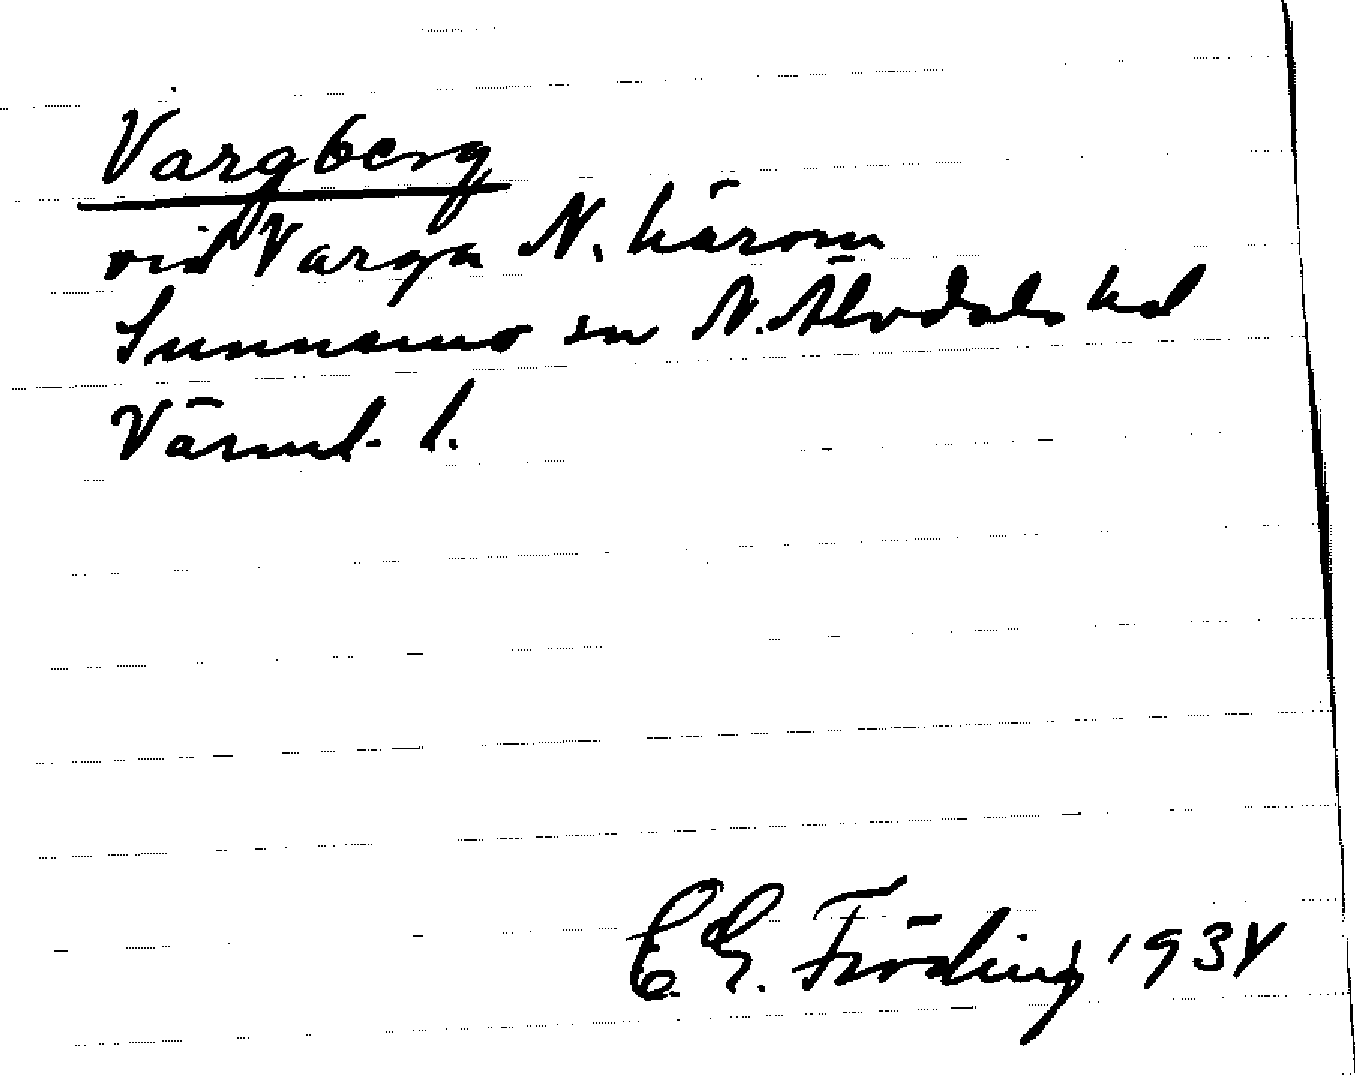 Vargberg
vid Varga N. härom
Sunnemo sn N. Älvdals hd
Värml. l.
E. G. Fröding 1934